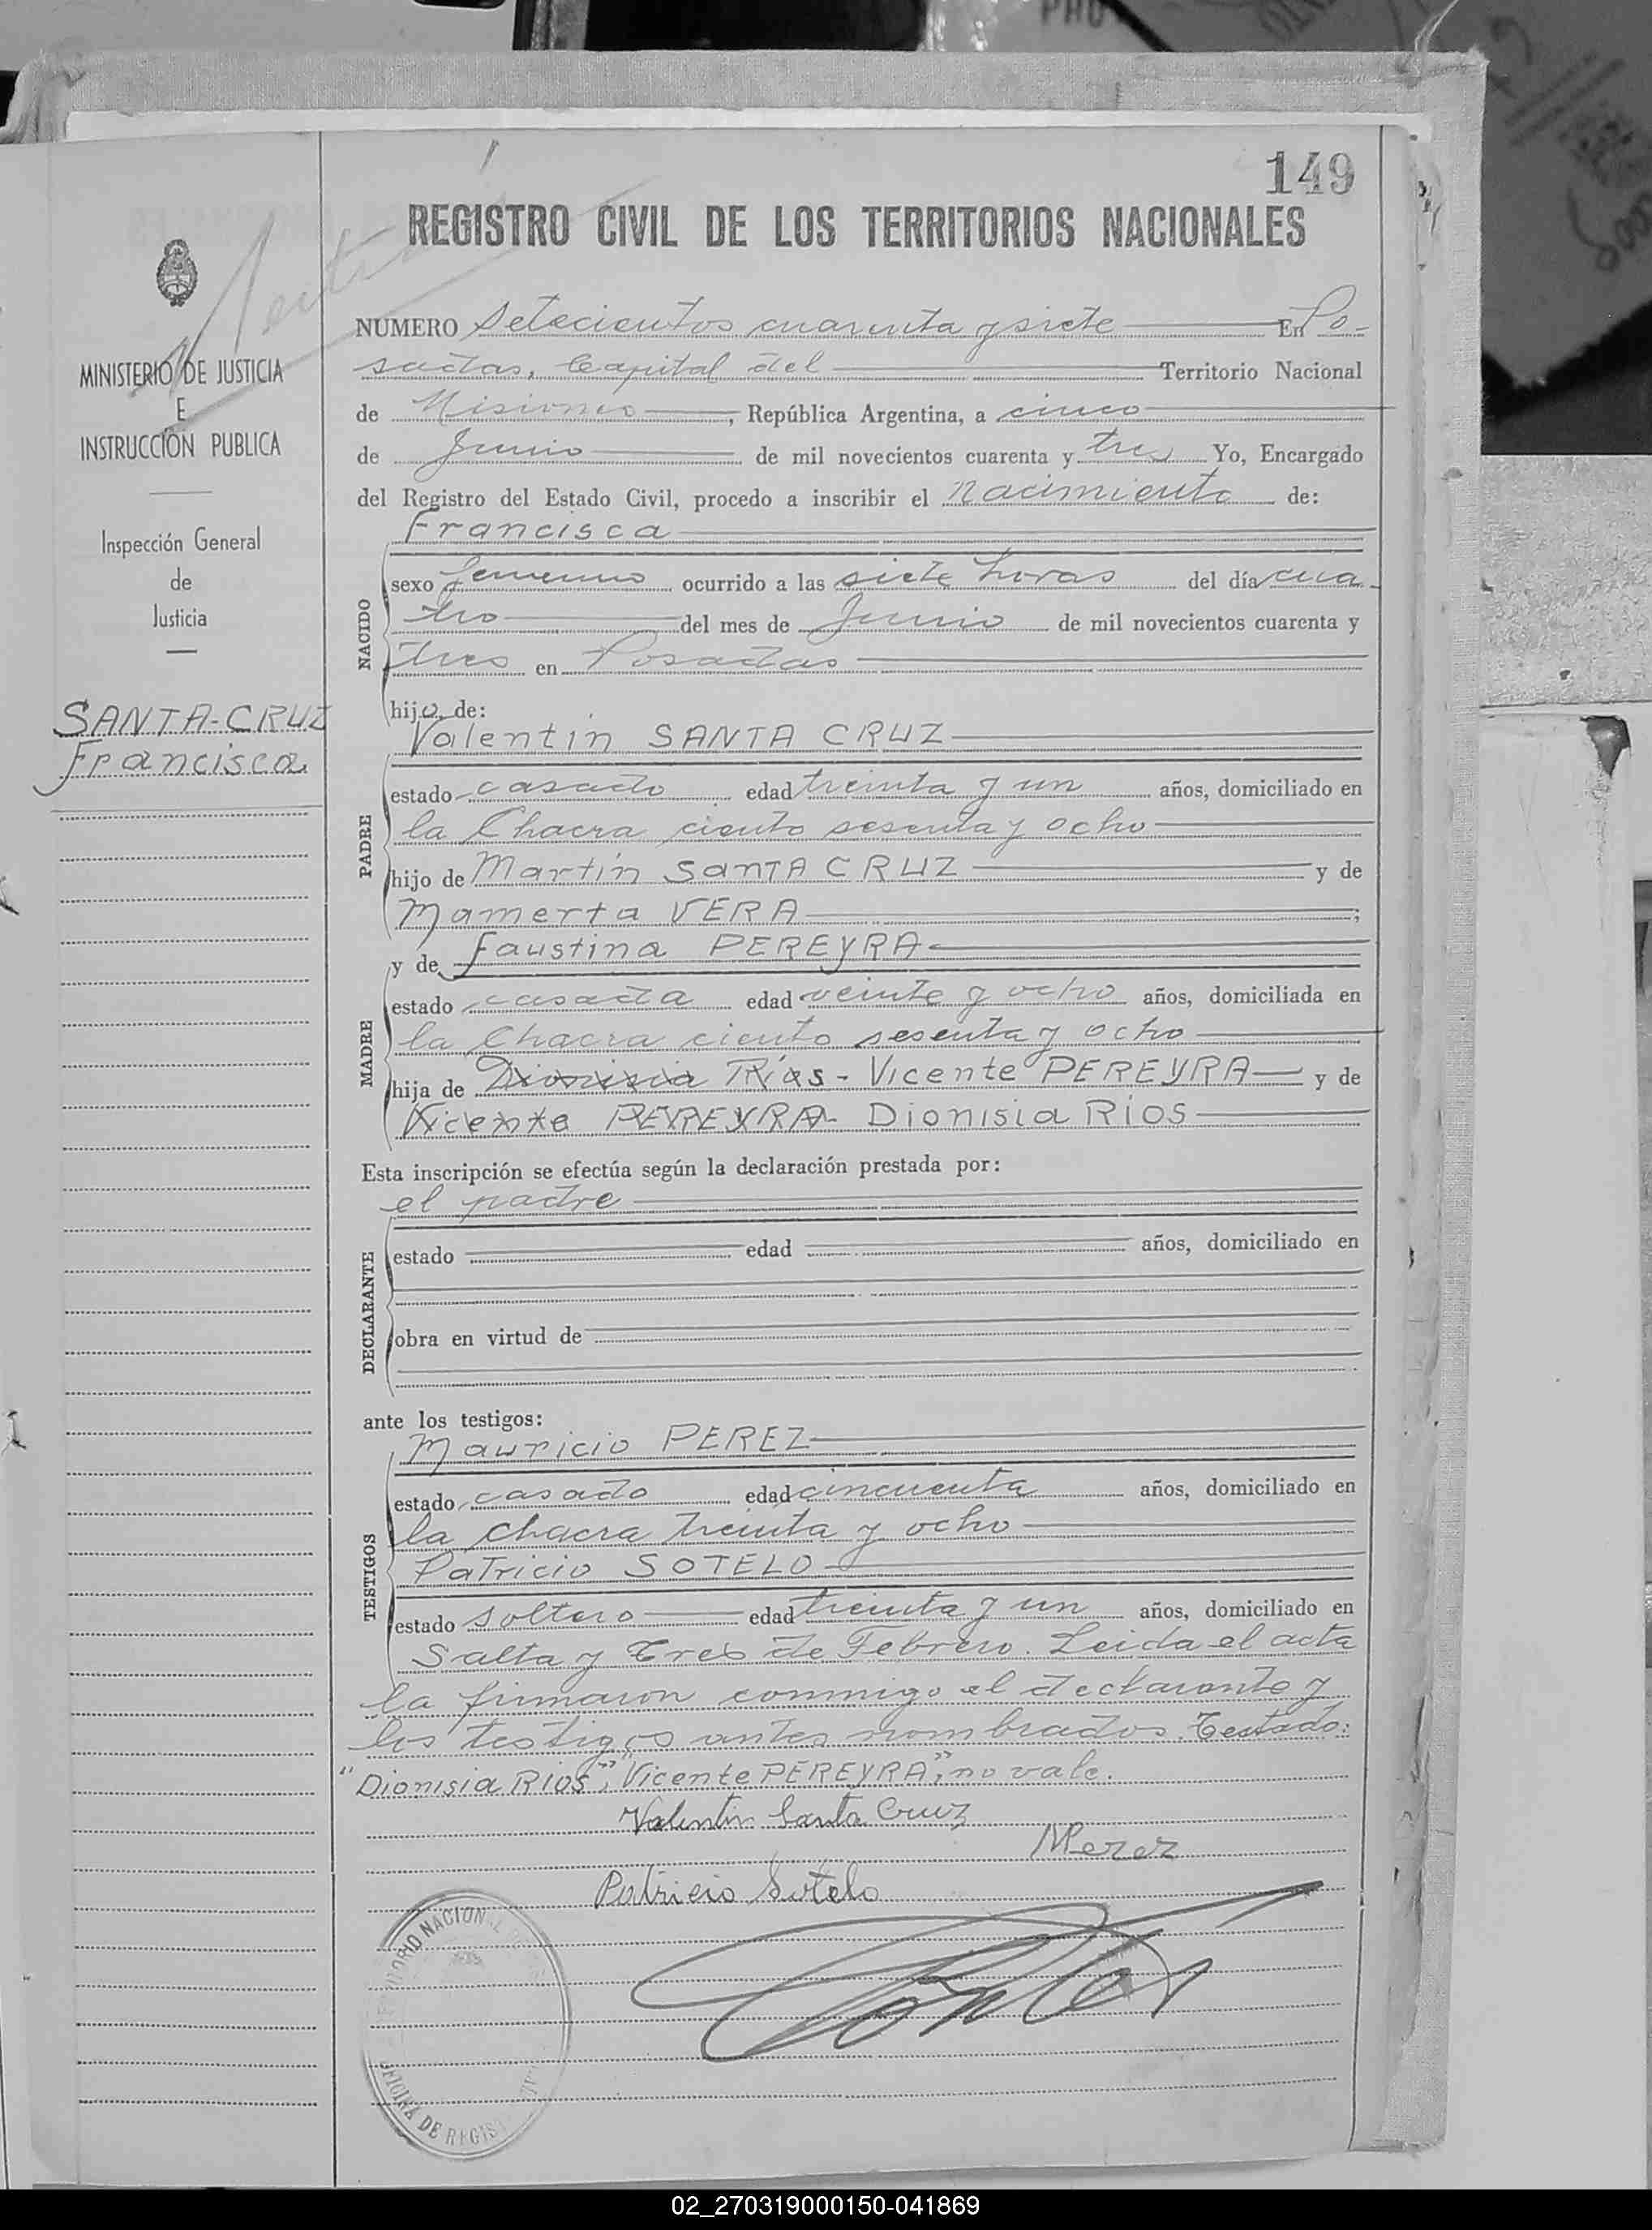 149
REGISTRO CIVIL DE LOS TERRITORIOS NACIONALES
MINISTERIO DE JUSTICIA
E
INSTRUCCIÓN PUBLICA
Inspección General
de
Justicia
SANTA-CRUZ
Francisca
NUMERO Setecientos cuarenta y siete En Po-
sadas, Capital del Territorio Nacional
de Misiones, República Argentina, a cinco
de Junio de mil novecientos cuarenta y tres Yo, Encargado
del Registro del Estado Civil, procedo a inscribir el Nacimiento de:
Francisca
NACIDO
sexo femenino ocurrido a las siete horas del día cua-
tro del mes de Junio de mil novecientos cuarenta y
tres en Posadas
hijo de:
Valentín SANTA CRUZ
PADRE
estado casado edad treinta y un años, domiciliado en
la Chacra ciento sesenta y ocho
hijo de Martín SANTA CRUZ y de
Mamerta VERA;
y de Faustina PEREYRA
MADRE
estado casada edad veinte y ocho años, domiciliada en
la Chacra ciento sesenta y ocho
hija de Dionisia Ríos - Vicente PEREYRA y de
Vicente PEREYRA - Dionisia RIOS
Esta inscripción se efectúa según la declaración prestada por:
el padre
DECLARANTE
estado edad años, domiciliado en
obra en virtud de
ante los testigos:
Mauricio PEREZ
TESTIGOS
estado casado edad cincuenta años, domiciliado en
la chacra treinta y ocho
Patricio SOTELO
estado soltero edad treinta y un años, domiciliado en
Salta y Tres de Febrero. Leida el acta
la firmaron conmigo el declarante y
los testigos antes nombrados. Testado:
"Dionisia RIOS", "Vicente PEREYRA", no vale.
Valentin Santa Cruz
MPerez
Patricio Sotelo
NACIONAL
OFICINA DE REGIS
02_270319000150-041869